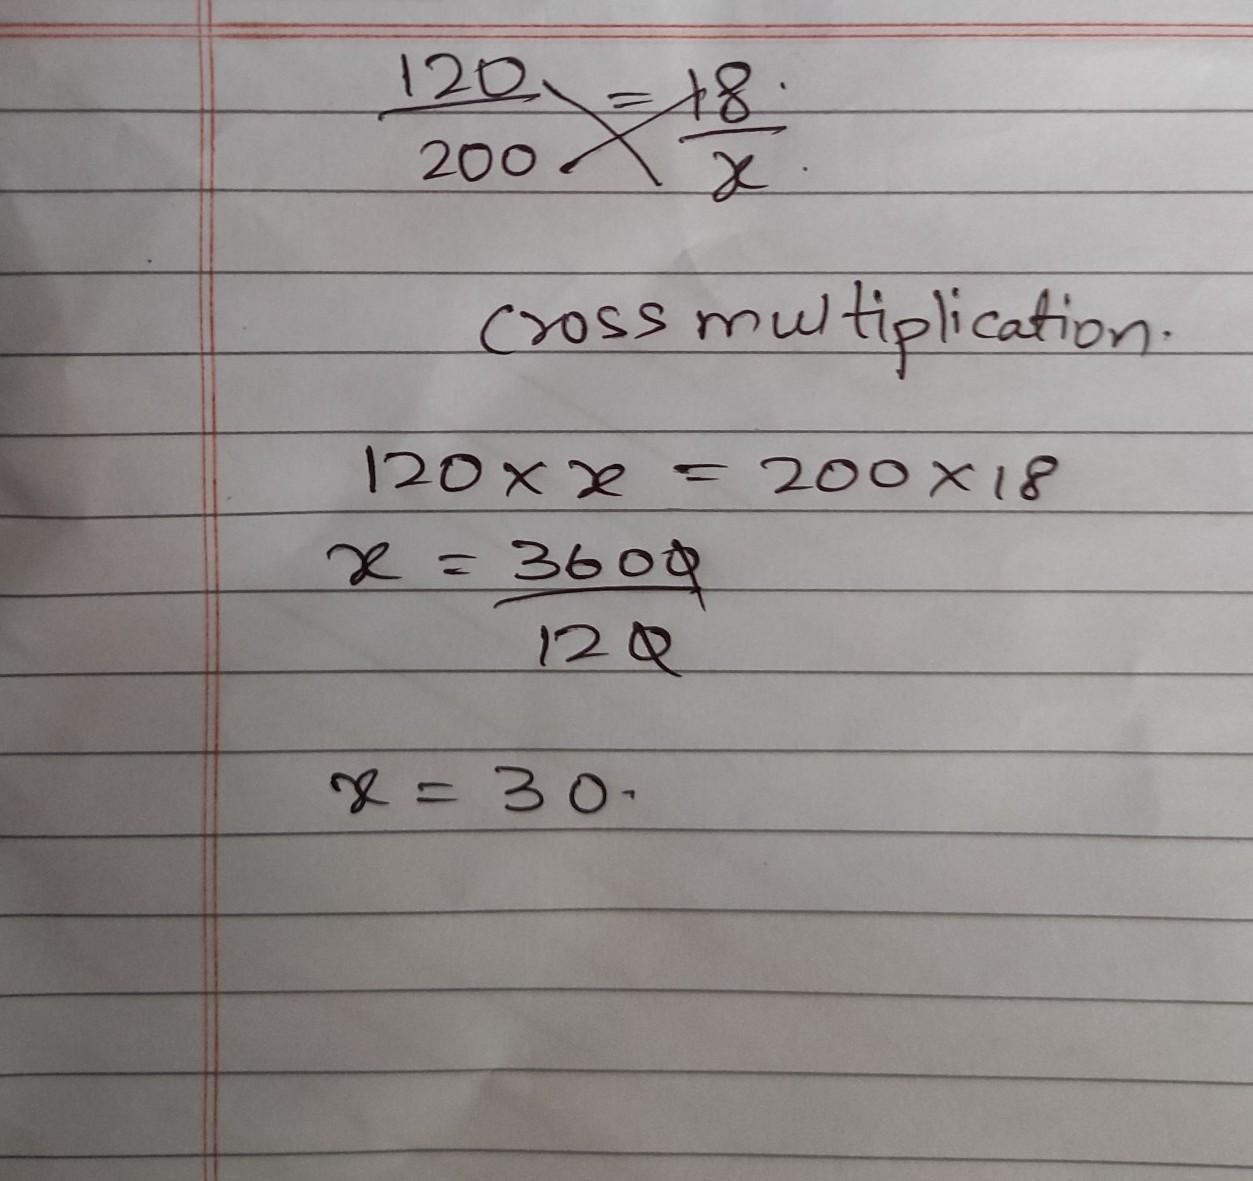 120 = 18
200 x
Cross multiplication.
120 × x = 200 × 18
x = 3600
120
x = 30.